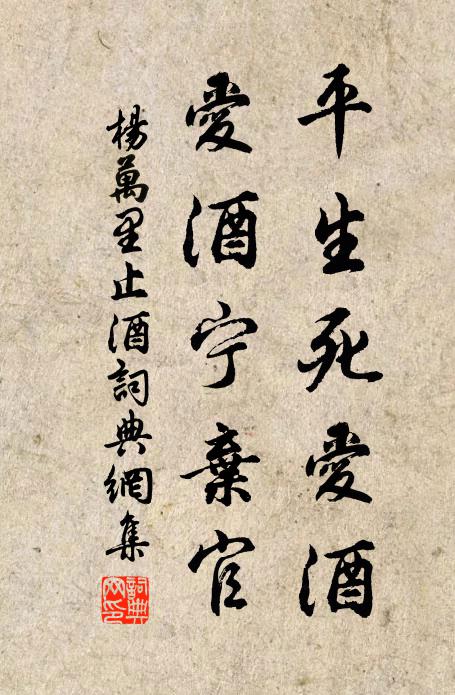 平生死愛酒
愛酒宁棄官
楊萬里止酒詞典網集
詞典網印